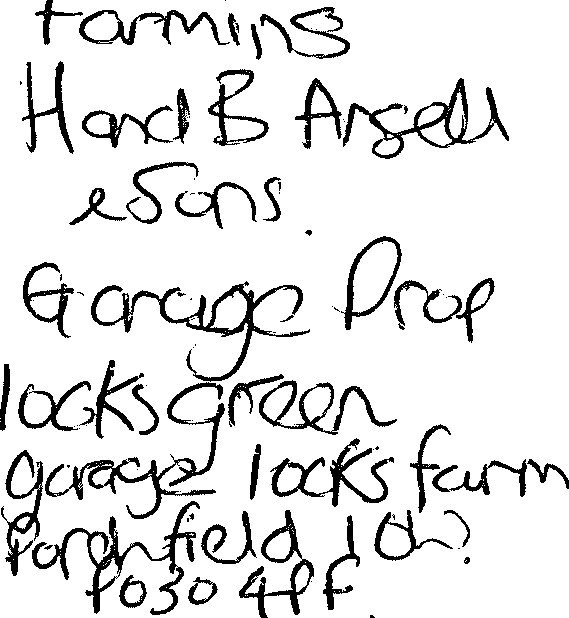 Farming
H and B Angell
& Sons.
Garage Prop
locks green
garage locks farm
Porchfield IOW.
PO30 4PF